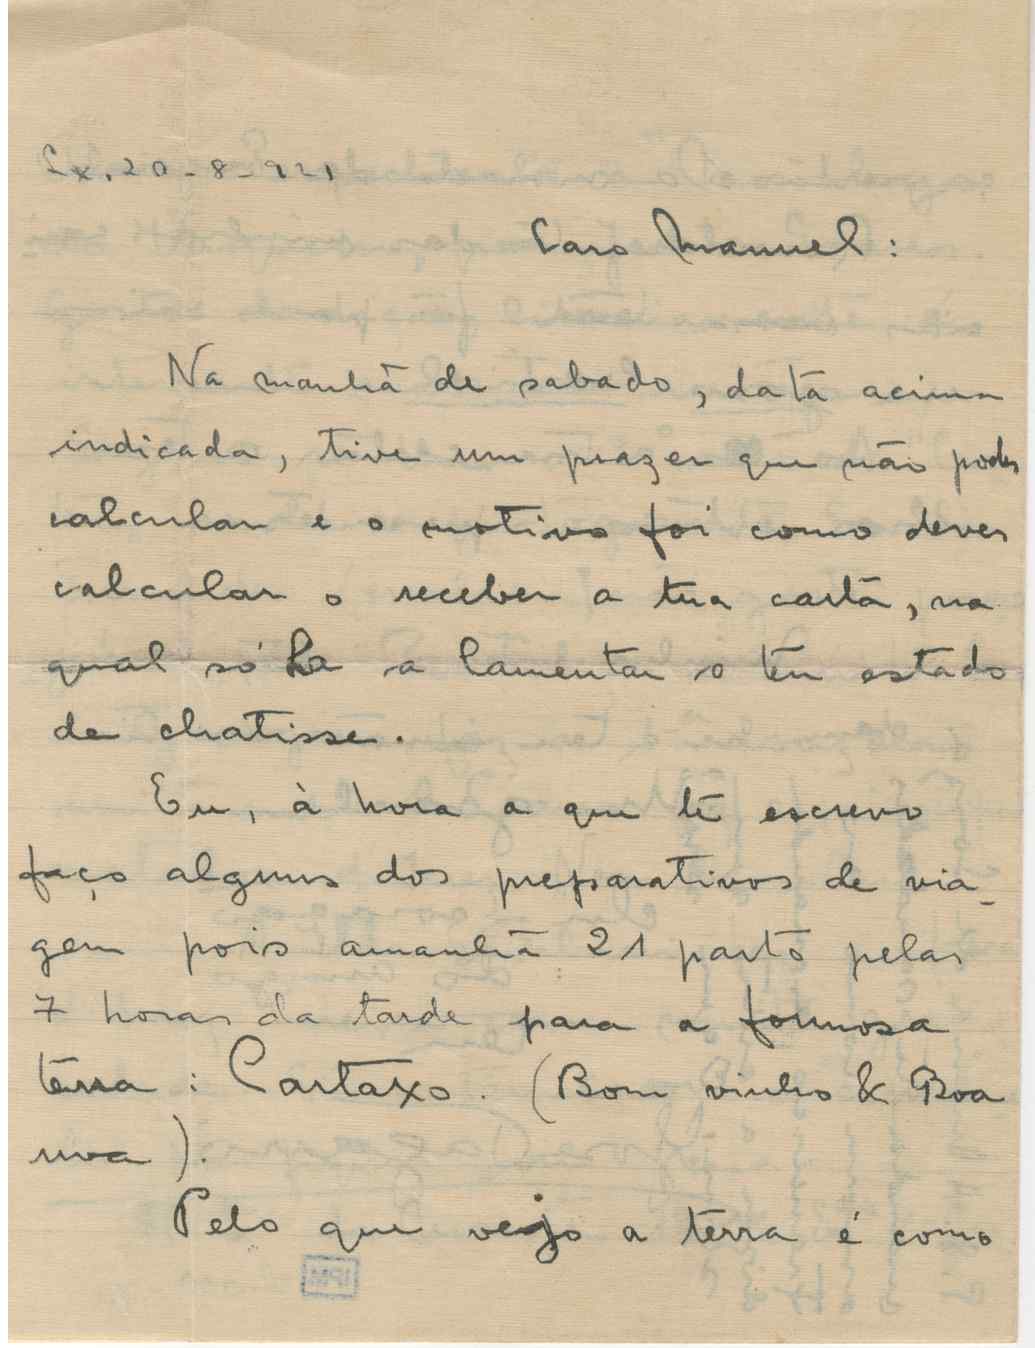 Lx. 20-8-921
Caro Manuel:
Na manhã de sabado, data acima
indicada, tive um prazer que não podes
calcular e o motivo foi como deves
calcular o receber a tua carta, na
qual só ha a lamentar o teu estado
de chatisse.
Eu, à hora a que te escrevo
faço alguns dos preparativos de via-
gem pois amanhã 21 parto pelas
7 horas da tarde para a formosa
terra: Cartaxo. (Bom vinho & Boa
uva).
Pelo que vejo a terra é como